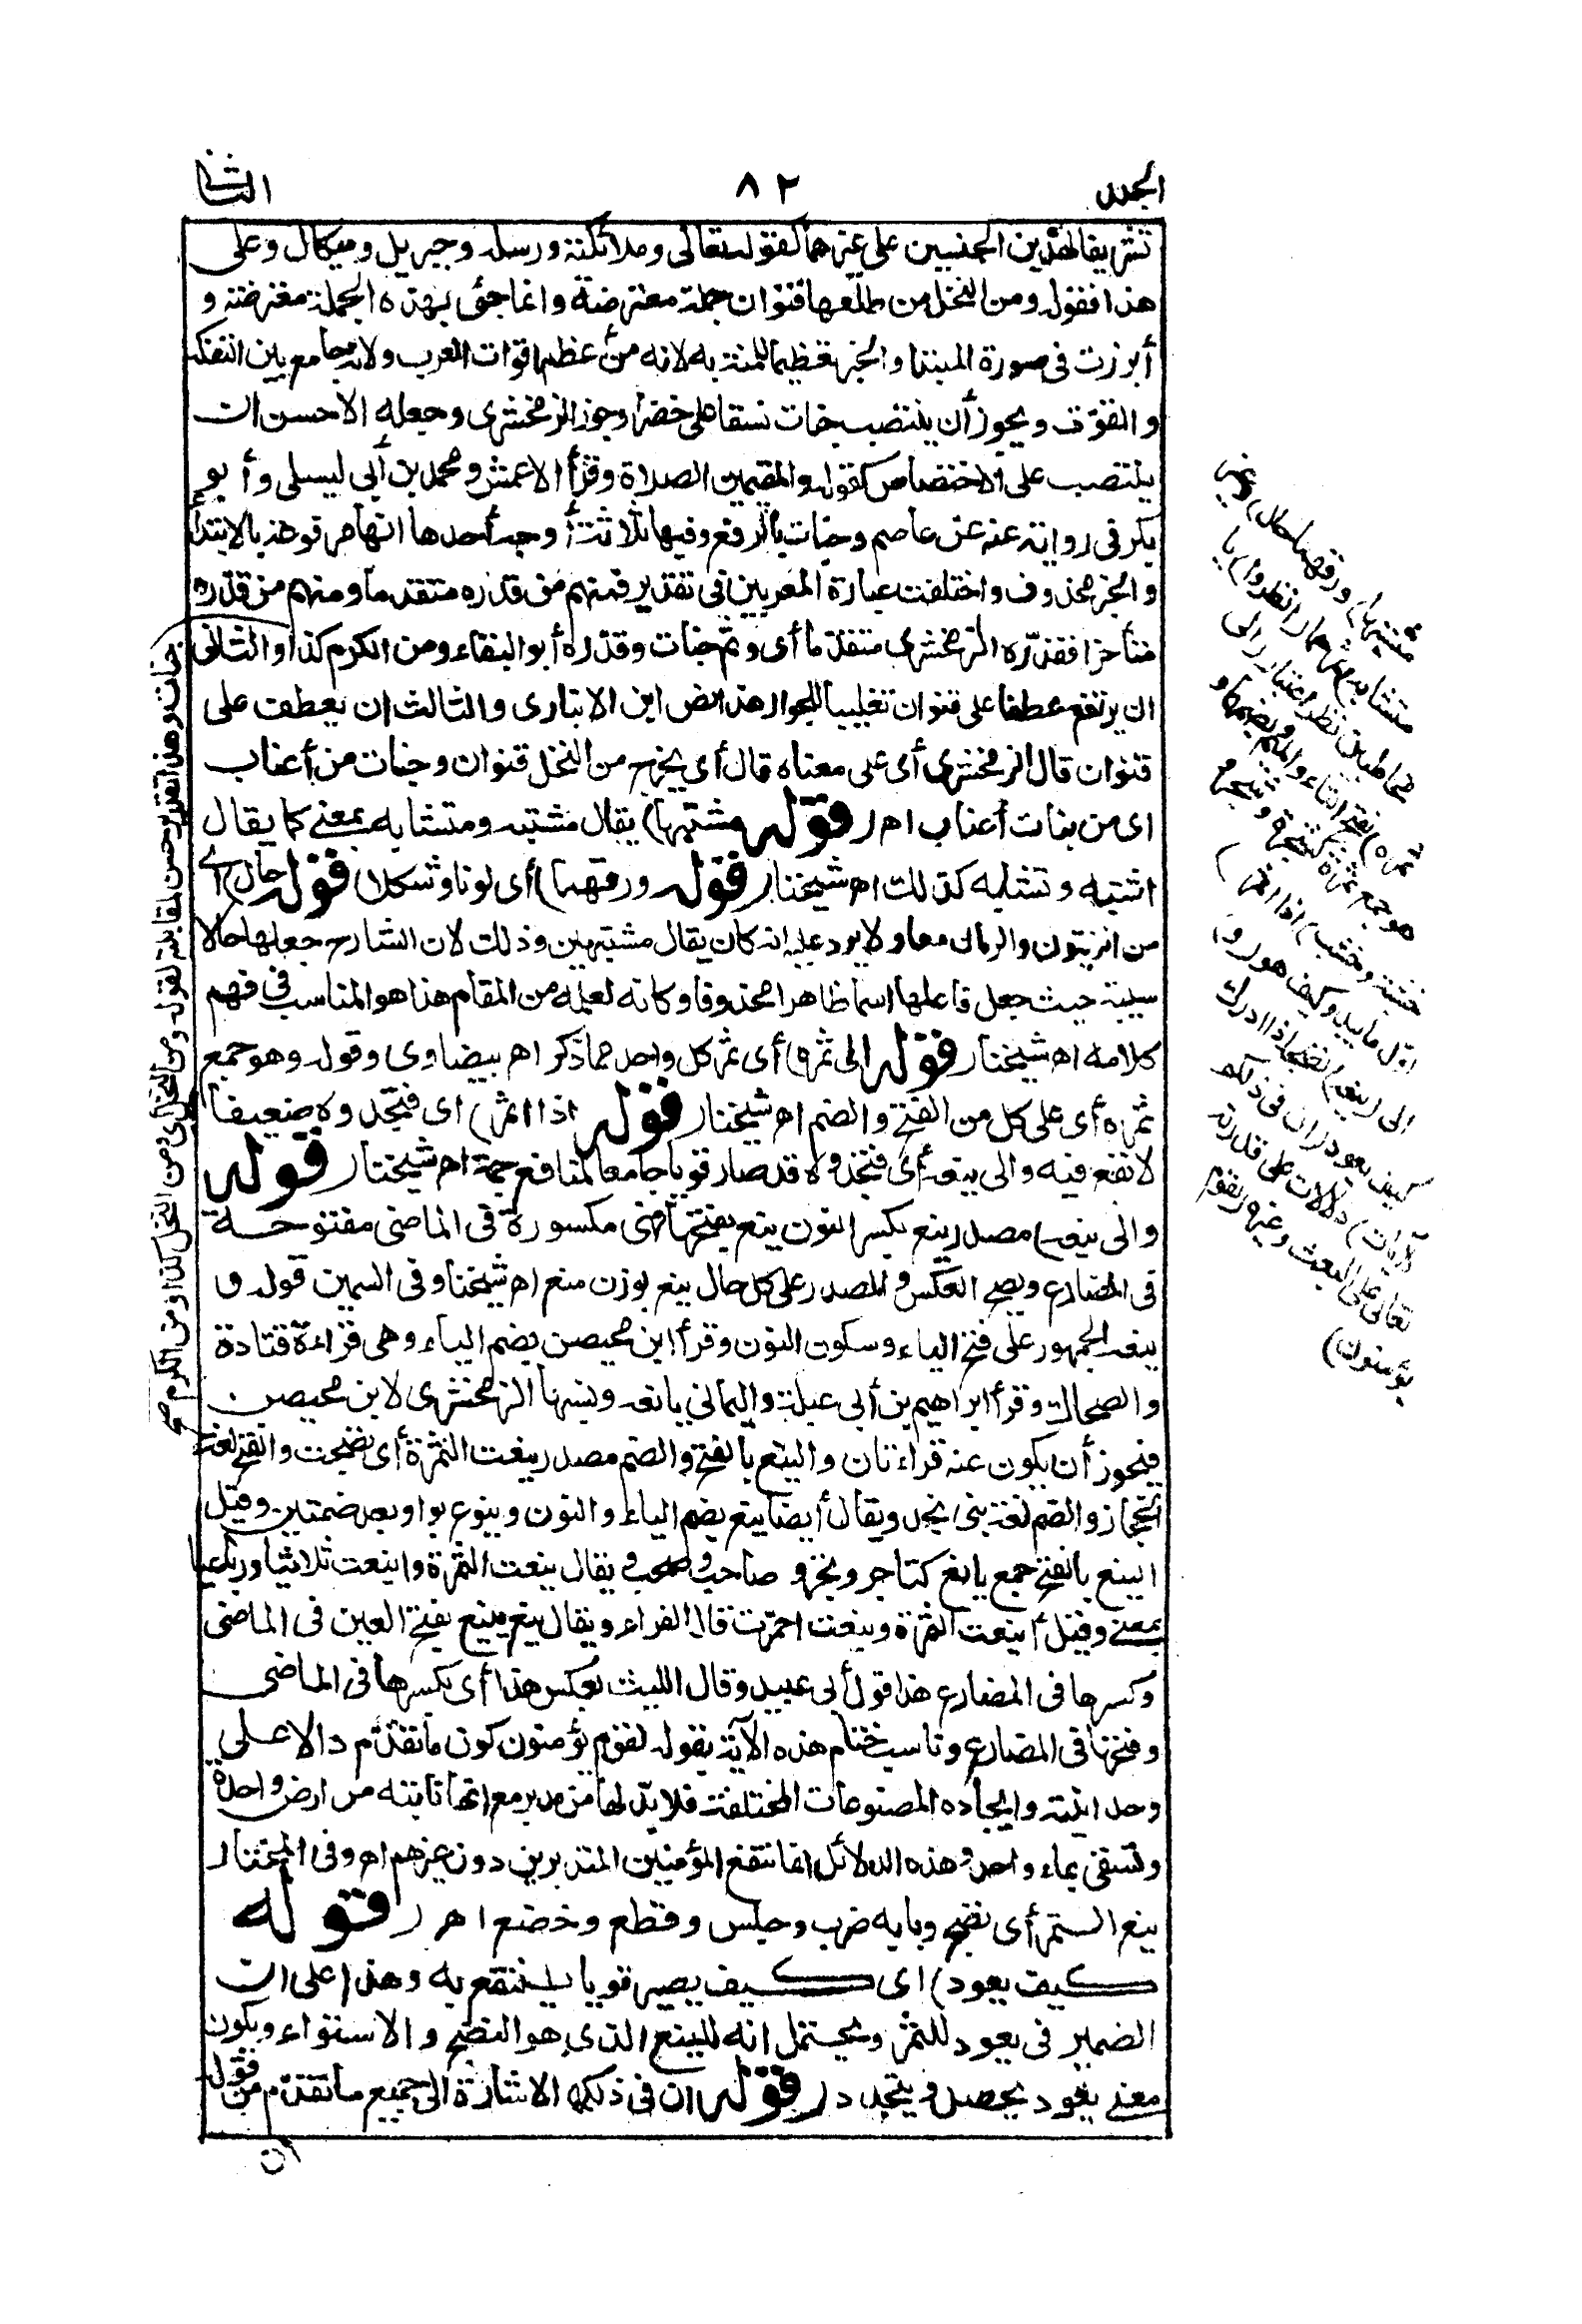 الجلد
٨٢
الثانى
تشريفا لهذين الجنسين على غيرهما كقوله تعالى وملائكته ورسله وجبريل وميكال وعلى
هذا فقوله ومن النخل من طلعها قنوان جملة معترضة وانما جئ بهذه الجملة معترضة و
أبرزت فى صورة المبتدا والخبر تعظيما للمنة به لانه من أعظم اقوات العرب ولانه جامع بين التفكه
والتقوّت ويجوز أن ينتصب جنات نسقا على خضرا وجوز الزمخشرى وجعله الاحسن ان
ينتصب على الاختصاص كقوله والمقيمين الصلاة وقرأ الاعمش ومحمد بن أبى ليسلى وأبو
بكر فى رواية عنه عن عاصم وجنات بالرفع وفيها ثلاثة أوجه أحدها انها مرفوعة بالابتداء
والخبر محذوف واختلفت عبارة المعربين فى تقديره فمنهم من قدره متقدما ومنهم من قدّره
متأخرا فقدّره الزمخشرى متقدّما أى وثم جنات وقدّره أبو البقاء ومن الكرم كذا والثانى
ان يرتفع عطفا على قنوان تغليبا للجوار هذا نص ابن الانبارى والثالث ان يعطف على
قنوان قال الزمخشرى أى على معناه قال أى يخرج من النخل قنوان وجنات من أعناب
اى من بنات أعناب اهـ ( قوله مشتبها) يقال مشتبه ومتشابه بمعنى كما يقال
اشتبه وتشابه كذلك اهـ شيخنا ( قوله ورقهما) أى لونا وشكلا ( قوله حال) اى
من الزيتون والرمان معا ولا يرد عليه انه كان يقال مشتبهين وذلك لان الشارح جعلها حالا
سببية حيث جعل فاعلها اسما ظاهرا محذوفا وكانه لعلمه من المقام هذا هو المناسب فى فهم
كلامه اهـ شيخنا ( قوله الى ثمره) أى ثمر كل واحد مما ذكر اهـ بيضاوى وقوله وهو جمع
ثمرة أى على كل من الفتح والضم اهـ شيخنا ( قوله اذا اثمر) اى فتجدوه ضعيفا
لا نفع فيه والى ينعه أى فتجدوه قد صار قويا جامعا لمنافع جمة اهـ شيخنا ( قوله
والى ينعه) مصدر ينع بكسر النون ينع بفتحها فهى مكسورة فى الماضى مفتوحة
فى المضارع ويصح العكس والمصدر على كل حال ينع بوزن منع اهـ شيخنا وفى السمين قوله و
ينعه الجمهور على فتح الياء وسكون النون وقرأ ابن محيصن بضم الياء وهى قراءة قتادة
والضحاك وقرأ ابراهيم بن أبى عبلة واليمانى يانعه ونسبها الزمخشرى لابن محيصن
فيجوز أن يكون عنه قراءتان والينع بالفتح والضم مصدر ينعت الثمرة أى نضجت والفتح لغة
الحجاز والضم لغة بنى نجد ويقال أيضا ينع بضم الياء والنون وينوع بواو بعد ضمتين وقيل
الينع بالفتح جمع يانع كتاجر وتجر و صاحب وصحب ويقال ينعت الثمرة واينعت ثلاثيا ورباعيا
بمعنى وقيل أينعت الثمرة وينعت احمرّت قاله الفراء ويقال ينع يينع بفتح العين فى الماضى
وكسرها فى المضارع هذا قول أبى عبيد وقال الليث بعكس هذا أى بكسرها فى الماضى
وفتحها فى المضارع وناسب ختام هذه الآية بقوله لقوم يؤمنون كون ما تقدّم دالا على
وحدانيته وايجاده المصنوعات المختلفة فلا بدّ لها من مدبر مع انها نابتة من ارض واحدة
وتسقى بماء واحد وهذه الدلائل انما تنفع المؤمنين المتدبرين دون غيرهم اهـ وفى المختار
ينع الثمر أى نضج وبابه ضرب وجلس وقطع وخضع اهـ ( قوله
كيف يعود) اى كيف يصير قويا ينتفع به وهذا على ان
الضمير فى يعود للثمر ويحتمل انه للينع الذى هو النضج والاستواء ويكون
معنى يعود يحصل ويتجدد ( قوله ان فى ذلكم الاشارة الى جميع ما تقدّم من قوله
ان
جنات وهذا التقدير حسن لمقابلته لقوله ومن النخل أى ومن النخل كذا ومن الكرم صح
مشتبها) ورقهما حال (وغير
متشابه) ثمرهما (انظروا) يا
مخاطبين نظر اعتبار (الى
ثمره) بفتح الثاء والميم وبضمهما و
هو جمع ثمرة كشجرة وشجر و
خشبة وخشب (اذا اثمر)
اوّل ما يبدو كيف هو (و)
الى (ينعه) نضجه اذا ادرك
كيف يعود (ان فى ذلكم
لآيات) دلالات على قدرته
تعالى على البعث وغيره (لقوم
يؤمنون)